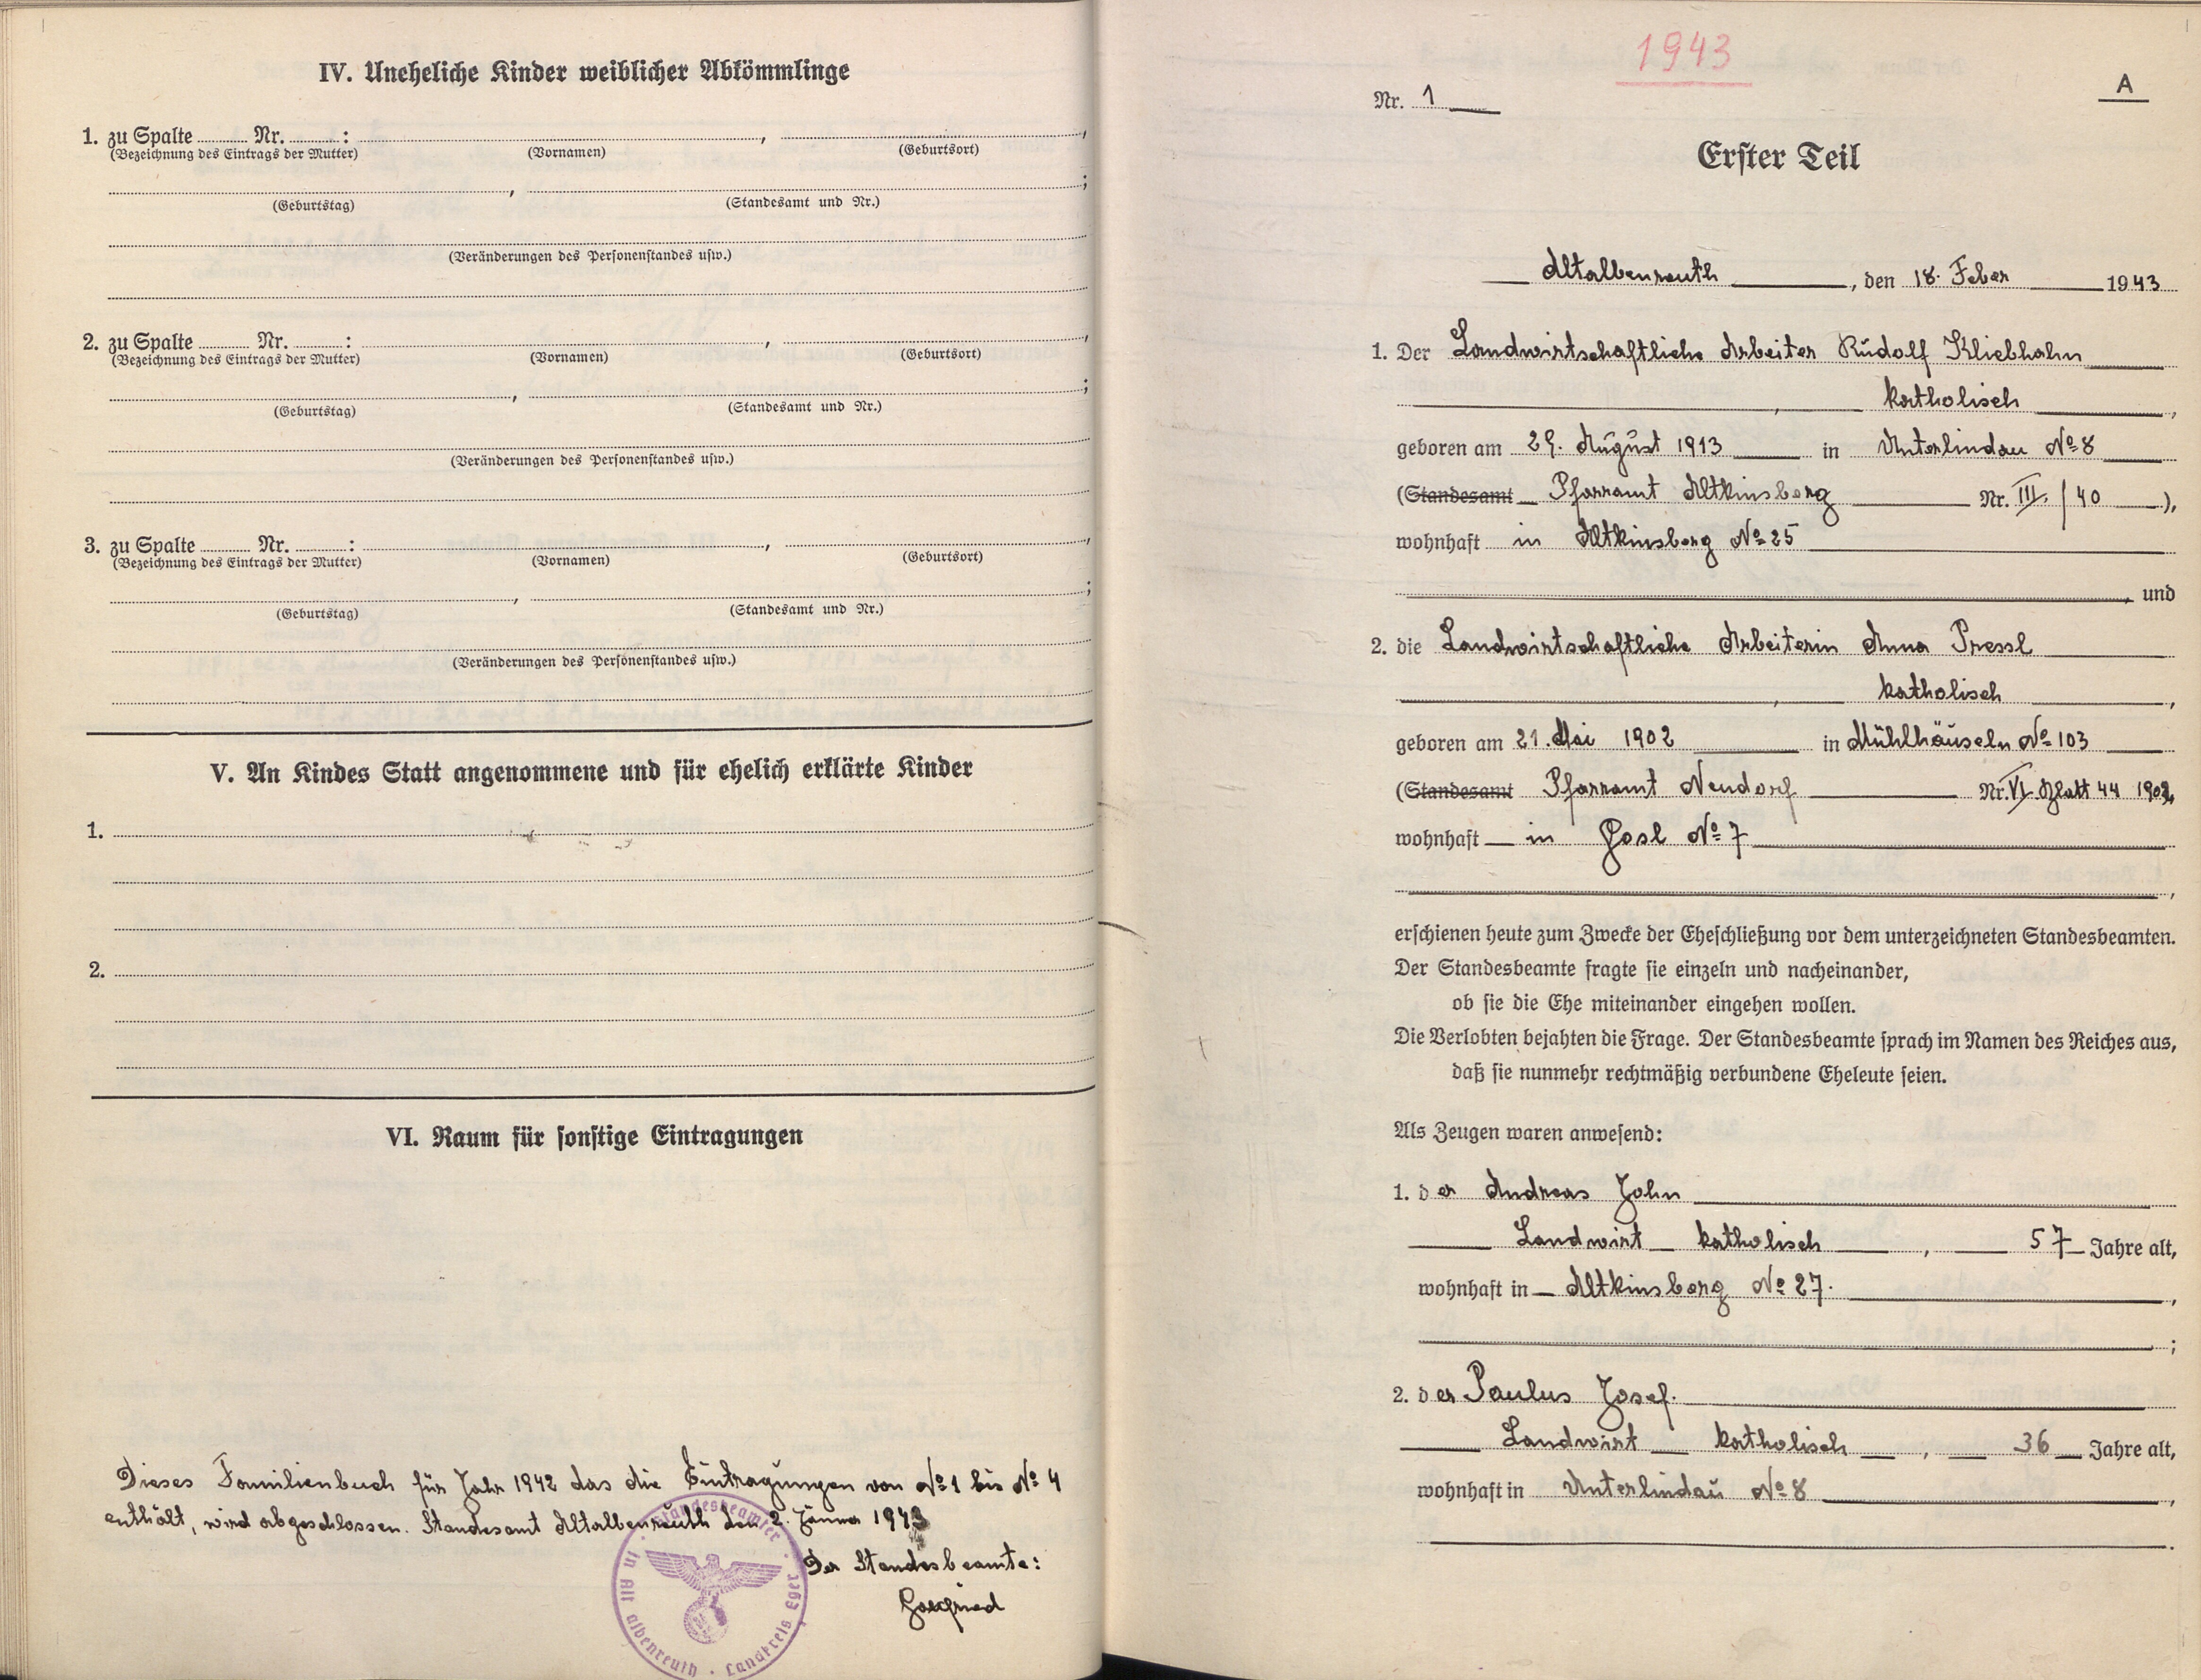 IV. Uneheliche Kinder weiblicher Abkömmlinge
1. zu Spalte ........ Nr. ........ : ........ , ........ ,
(Bezeichnung des Eintrags der Mutter) (Vornamen) (Geburtsort)
........ , ........ ;
(Geburtstag) (Standesamt und Nr.)
(Veränderungen des Personenstandes usw.)
2. zu Spalte ........ Nr. ........ : ........ , ........ ,
(Bezeichnung des Eintrags der Mutter) (Vornamen) (Geburtsort)
........ , ........ ;
(Geburtstag) (Standesamt und Nr.)
(Veränderungen des Personenstandes usw.)
3. zu Spalte ........ Nr. ........ : ........ , ........ ,
(Bezeichnung des Eintrags der Mutter) (Vornamen) (Geburtsort)
........ , ........ ;
(Geburtstag) (Standesamt und Nr.)
(Veränderungen des Personenstandes usw.)
V. An Kindes Statt angenommene und für ehelich erklärte Kinder
1.
2.
VI. Raum für sonstige Eintragungen
Dieses Familienbuch für Jahr 1942 das die Eintragungen von No 1 bis No 4
enthält, wird abgeschlossen. Standesamt Altalbenreuth den 2. Jänner 1943
Der Standesbeamte:
Standesbeamter · in Alt albenreuth · Landkreis Eger ·
1943
A
Nr. 1
Erster Teil
Altalbenreuth, den 18. Feber 1943
1. Der Landwirtschaftliche Arbeiter Rudolf Kliebhahn
, katholisch,
geboren am 29. August 1913 in Unterlindau No 8
(Standesamt Pfarramt Altkinsberg Nr. III. / 40),
wohnhaft in Altkinsberg No 25
, und
2. die Landwirtschaftliche Arbeiterin Anna Pressl
, katholisch,
geboren am 21. Mai 1902 in Mühlhäuseln No 103
(Standesamt Pfarramt Neudorf Nr. VI. Blatt 44 1902,
wohnhaft in Gosl No 7
,
erschienen heute zum Zwecke der Eheschließung vor dem unterzeichneten Standesbeamten.
Der Standesbeamte fragte sie einzeln und nacheinander,
ob sie die Ehe miteinander eingehen wollen.
Die Verlobten bejahten die Frage. Der Standesbeamte sprach im Namen des Reiches aus,
daß sie nunmehr rechtmäßig verbundene Eheleute seien.
Als Zeugen waren anwesend:
1. der Andreas John
Landwirt katholisch, 57 Jahre alt,
wohnhaft in Altkinsberg No 27.,
;
2. der Paulus Josef.
Landwirt katholisch, 36 Jahre alt,
wohnhaft in Unterlindau No 8,
.